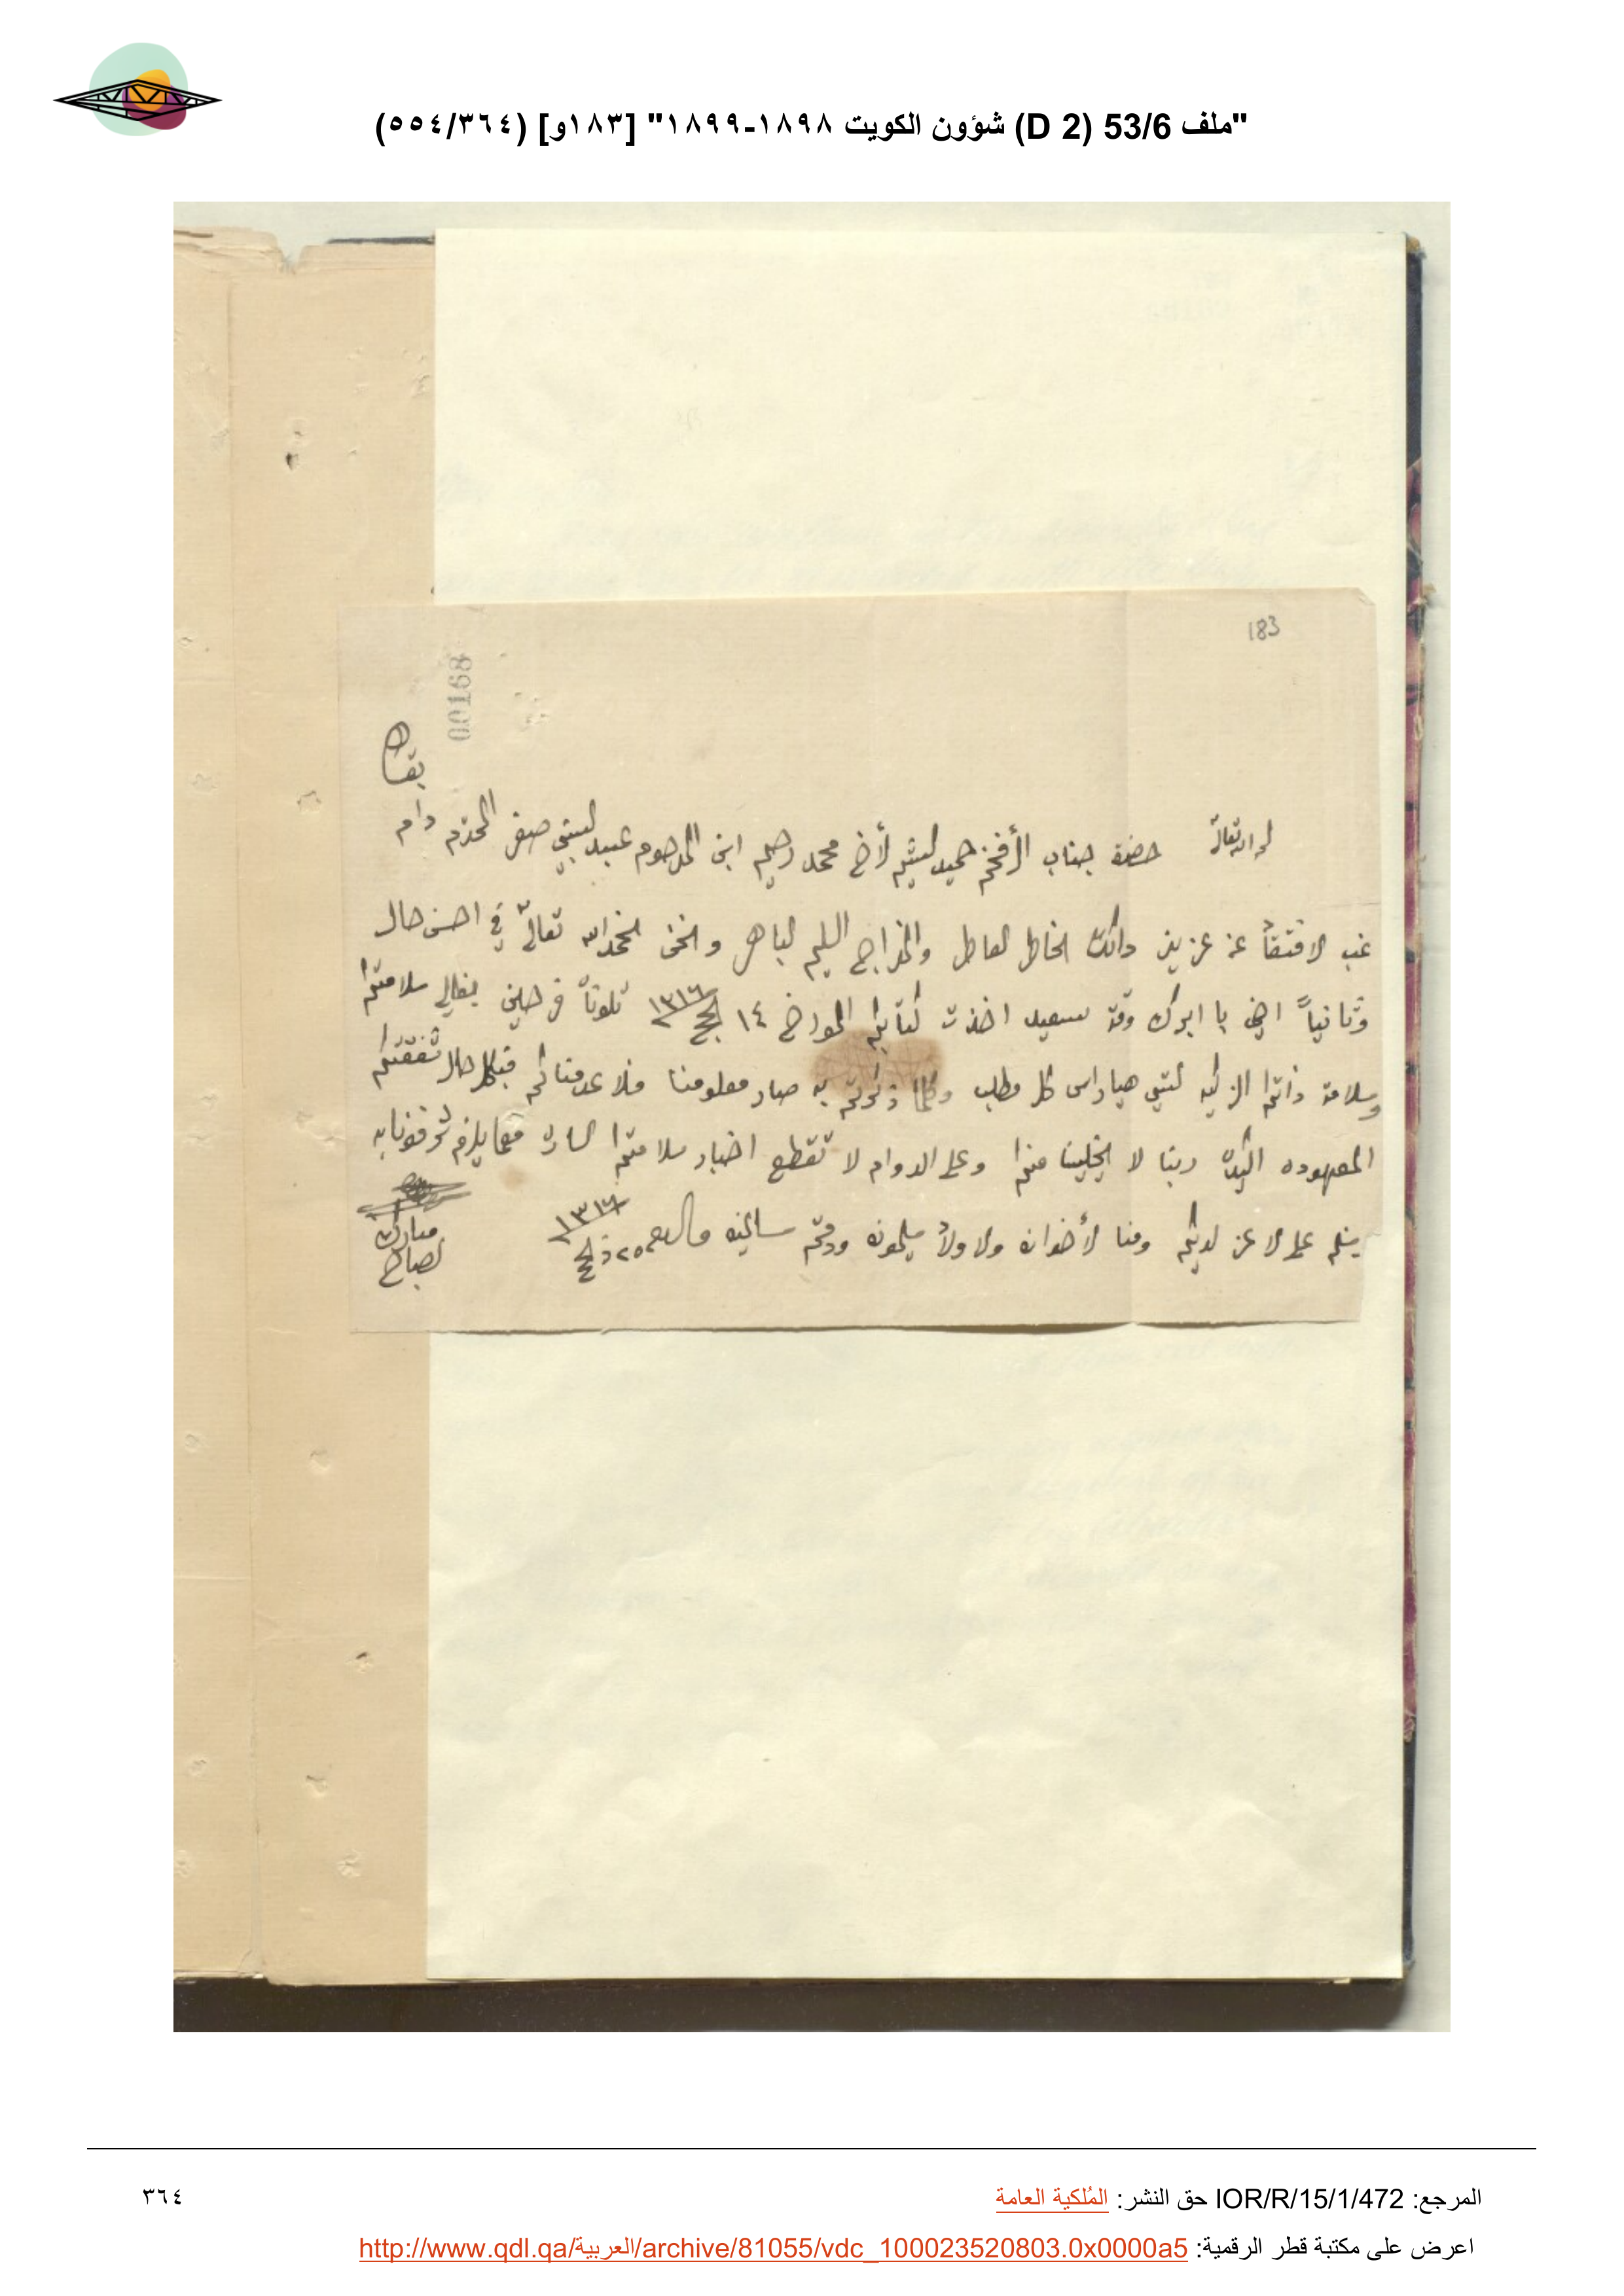 "ملف 53/6 (D 2) شؤون الكويت ١٨٩٨-١٨٩٩" [١٨٣و] (٣٦٤/٥٥٤)
183
00168
بقاه
حضرة جناب الأفخم حميد الشيم الأخ محمد رحيم ابن المرحوم عبد النبي صفر المحترم دام
غب الافتقاد عن عزيز ذاتك الخاطر العاطر والمزاج السليم الباهر ونحن الحمد الله تعالى في احسن حال
وثانياً با ابرك وقت سعيد اخذت كتابكم المورخ ١٤ ١٣١٦ تلوناه فرحين سلامتكم
وسلامة ذاتكم الزكيه التي هيا راس كل مطلب وكلما ذكرتم به صار معلومنا فلا عدمناكم شفقتكم
المعهوده ربنا لا يخلينا منكم وعلى الدوام لا تقطع اخبار سلامتكم الساره مهما يلزم شرفونا به
سلم على الاعز لديكم ومنا الأخوان والاولاد يسلمون ودمتم سالمين والسلام ٢٥ ١٣١٦
مبارك
الصباح
المرجع: IOR/R/15/1/472 حق النشر: المُلكية العامة
٣٦٤
اعرض على مكتبة قطر الرقمية: http://www.qdl.qa/العربية/archive/81055/vdc_100023520803.0x0000a5